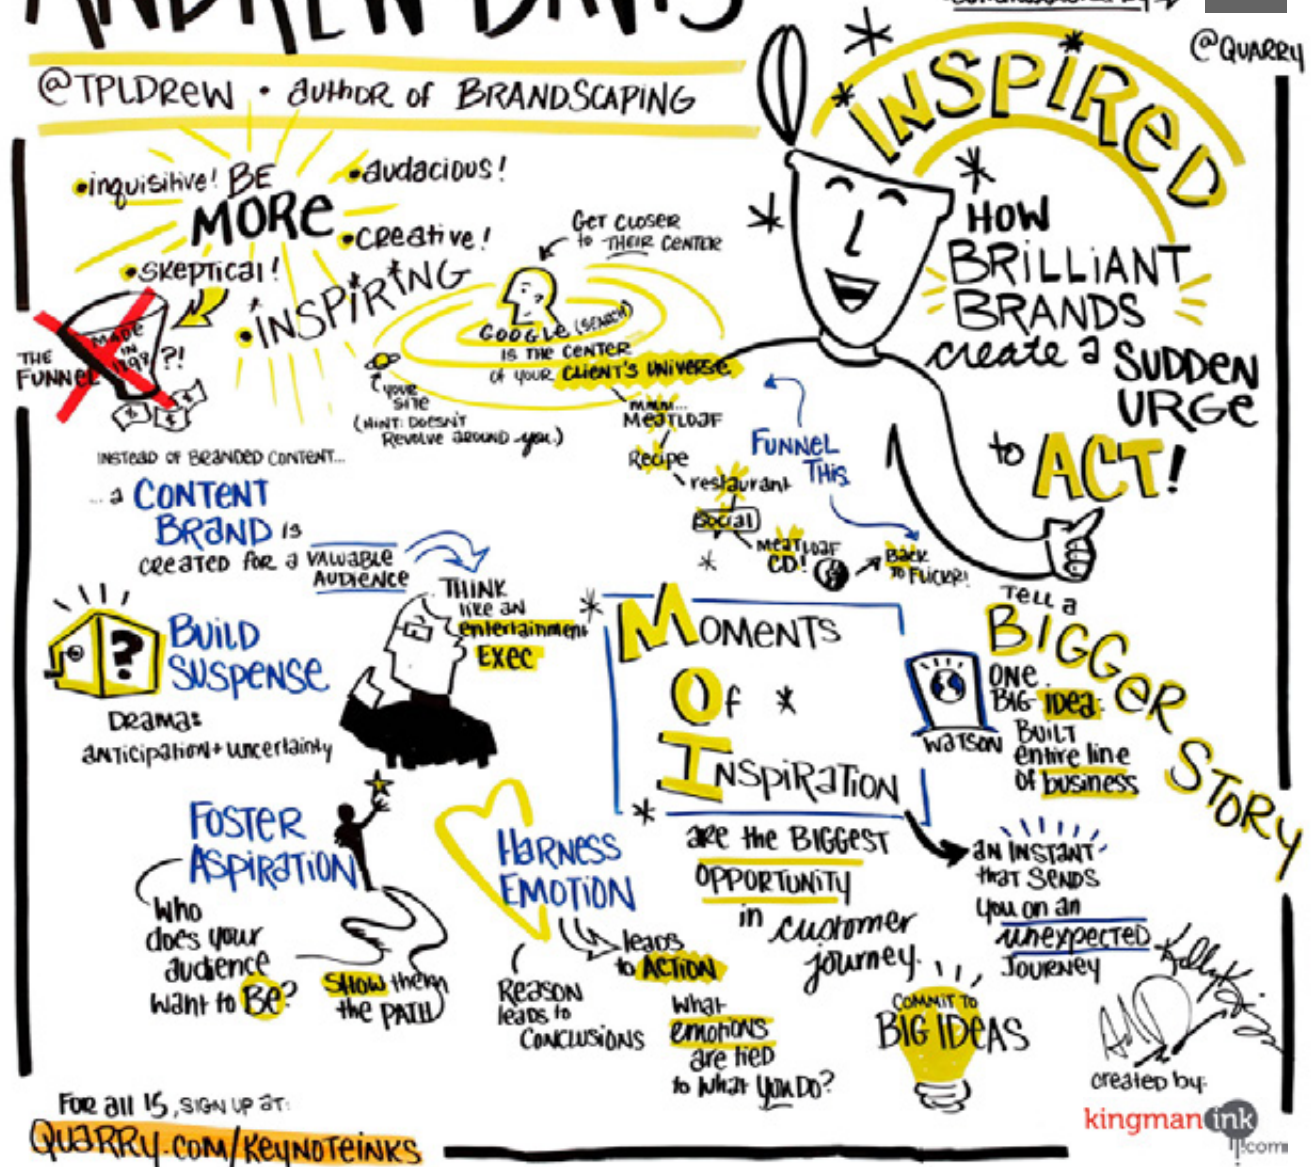 ANDREW DAVIS
@QUARRY
@TPLDrew • author of BRANDSCAPING
INSPIRED
HOW
BRILLIANT
BRANDS
create a SUDDEN
URGE
to ACT!
• inquisitive!
BE
MORE
• audacious!
• creative!
• skeptical!
• INSPIRING
THE
FUNNEL
MADE
IN
1898
?!
Get closer
to THEIR center
GOOGLE (SEARCH)
IS THE CENTER
OF YOUR CLIENT'S UNIVERSE
YOUR
SITE
(HINT: DOESN'T
REVOLVE AROUND you.)
MMM...
MEATLOAF
Recipe
restaurant
Social
MEATLOAF
CD!
BACK
TO FLICKR!
FUNNEL
THIS
INSTEAD OF BRANDED CONTENT...
...a CONTENT
BRAND is
created for a VALUABLE
AUDIENCE
THINK
like an
entertainment
EXEC
BUILD
SUSPENSE
DRAMA:
anticipation + uncertainty
MOMENTS
OF
INSPIRATION
are the BIGGEST
OPPORTUNITY
in customer
journey.
an INSTANT
that SENDS
you on an
unexpected
JOURNEY
Tell a
BIGGER STORY
WATSON
ONE
BIG idea:
BUILT
entire line
of business
FOSTER
ASPIRATION
Who
does your
audience
want to Be?
SHOW them
the PATH
HARNESS
EMOTION
leads
to ACTION
Reason
leads to
CONCLUSIONS
What
emotions
are tied
to what YOU DO?
COMMIT TO
BIG IDEAS
created by:
kingman ink
.com
For all 15, SIGN UP AT:
QUARRY.COM/KEYNOTEINKS